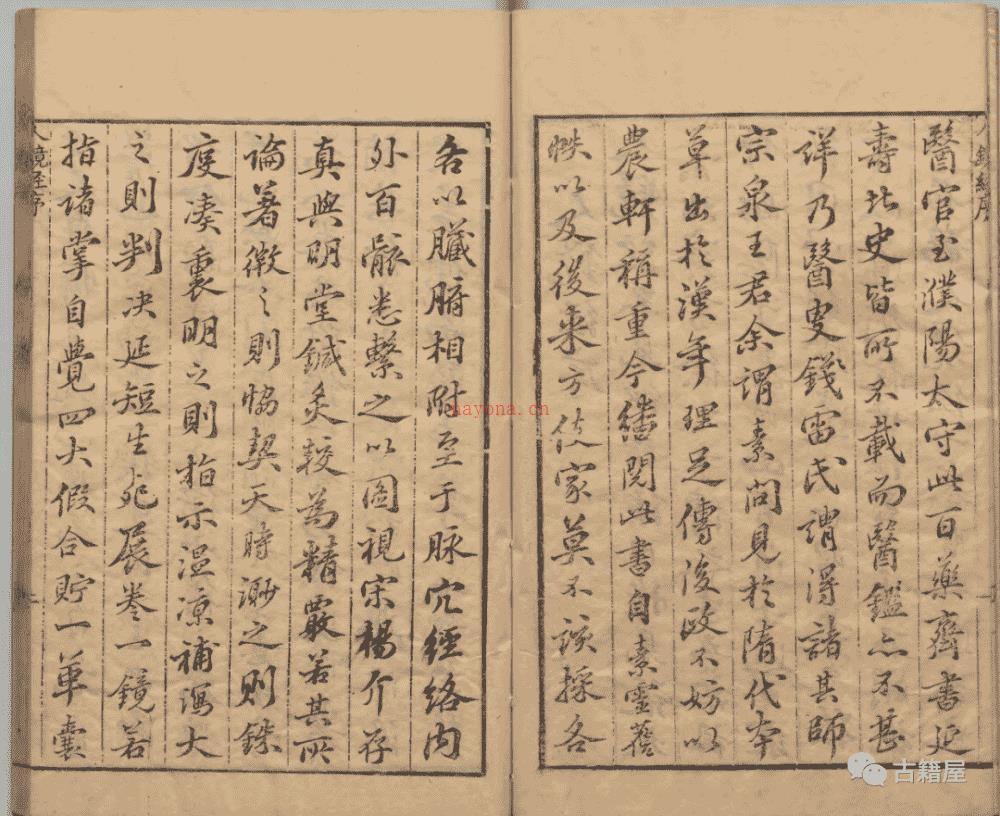 醫官至濮陽太守此百藥齊書延
壽北史皆所不載而醫鑑亦不甚
詳乃醫叟錢雷氏謂得諸其師
宗泉王君余謂素問見於隋代本
草出於漢年理足傳後政不妨以
農軒稱重今繙閱此書自素靈舊
帙以及後来方伎家莫不該採各
各以臟腑相附至于脉穴經絡内
外百骸悉繫之以圖視宋楊介存
真與明堂鍼灸較為精嚴若其所
論著徵之則恊契天時泖之則銖
度凑裏明之則指示温凉補瀉大
之則判决延短生死展卷一鏡若
指諸掌自覺四大假合貯一革囊
鏡經序
nayona.cn
古籍屋